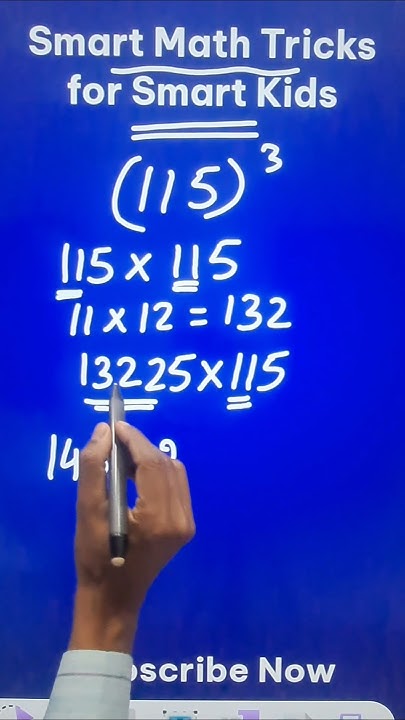 Smart Math Tricks
for Smart Kids
(115)³
115 x 115
11 x 12 = 132
13225 x 115
14
Now